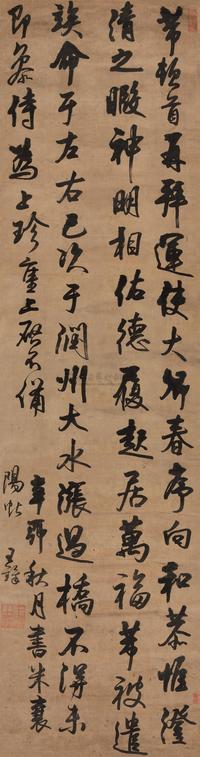 芾頓首再拜運使大郎春序向和恭惟澄
清之暇神明相佑德履起居萬福芾被遣
竢命于左右已次于潤州大水漲過橋不得未
即參侍為上珍重上啓不備 辛卯秋月書米襄
陽帖 王鐸